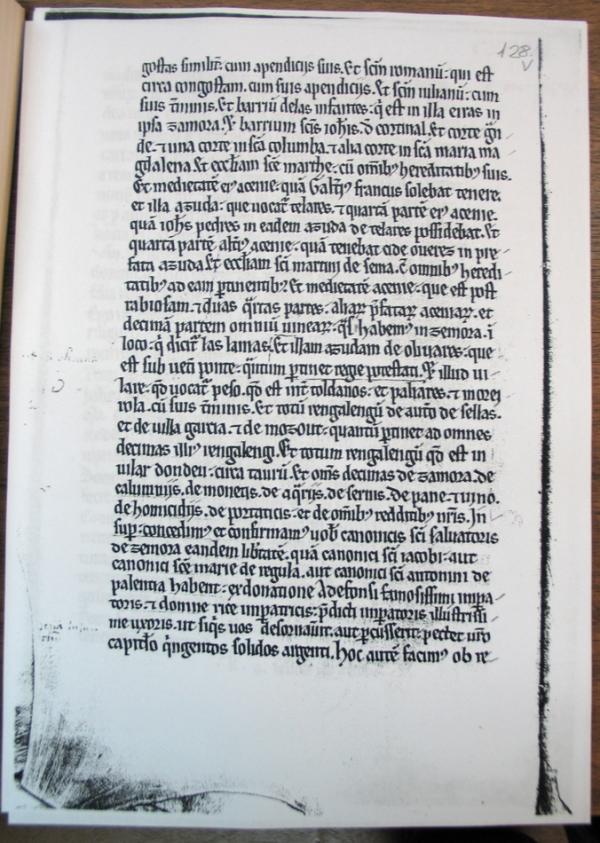 128
v
gostas similit̄. cum apendicijs suis. Et sc̄m romanū. qui est
circa congostam. cum suis apendicijs. Et sc̄m iulianū. cum
suis t̄minis. Et barriū delas infantes. q̄ est in illa eiras in
ipsa zamora. barrium sc̄is ioh̄is. d cortinal. Et corte
de. ⁊ una corte in sc̄a columba. ⁊ alia corte in sc̄a maria ma
gdalena. Et eccl̄iam sc̄e marthe. cū om̄ibꝰ hereditatibꝰ suis.
Et medietatē eiꝰ acenie. quā francus solebat tenere.
et illa azuda. que vocat̄ telares. ⁊ quartā partē eiꝰ acenie.
quā ioh̄s pedres in eadem azuda de telares possidebat. Et
quartā partē acenie. quā tenebat cide overez in pre
fata azuda. Et eccl̄iam sc̄i martini de sema. c̄ omnibꝰ heredi
tatibꝰ ad eam ꝑtinentibꝰ. Et medietatē acenie. que est post
rabiosam. ⁊ duas q̄rtas partes. aliaꝝ p̄fataꝝ aceniaꝝ. et
decimā partem omniū vineaꝝ. habemꝰ in zemora. ī
loco. q̄ dicit̄ las lamas. Et illam azudam de olivares. que
est sub vet̄i ponte. ꝑtinet regie potestati. illud vi
lare. qd̄ vocat̄ peso. qd̄ est int̄ toldanos. et paliares. ⁊ morei
rola. cū suis t̄minis. Et totū rengalengū de auto de sellas.
et de villa garcia. ⁊ de mozout. quantū ꝑtinet ad omnes
decimas illiꝰ rengalengi. Et totum rengalengū qd̄ est in
vilar don deu. circa taurū. Et om̄s decimas de zamora. de
calumnijs. de monetis. de aq̄rijs. de servis. de pane. ⁊ vino.
de homicidijs. de portaticis. et de om̄ibꝰ redditibꝰ nr̄is. In
suꝑ. concedimꝰ et confirmamꝰ vob̄ canonicis sc̄i salvatoris
de zemora eandem lib̄tatē. quā canonici sc̄i iacobi. aut
canonici sc̄e marie de regula. aut canonici sc̄i antonini de
palentia habent. ex donatione Adefonsi famosissimi impa
toris. ⁊ domne rice imꝑatricis. p̄dicti imꝑatoris illustrissi
me uxoris. ut siq̄s vos desornav̄it. aut ꝑcusserit. pectet vr̄o
capitl̄o q̄ngentos solidos argenti. Hoc autē facimꝰ ob re